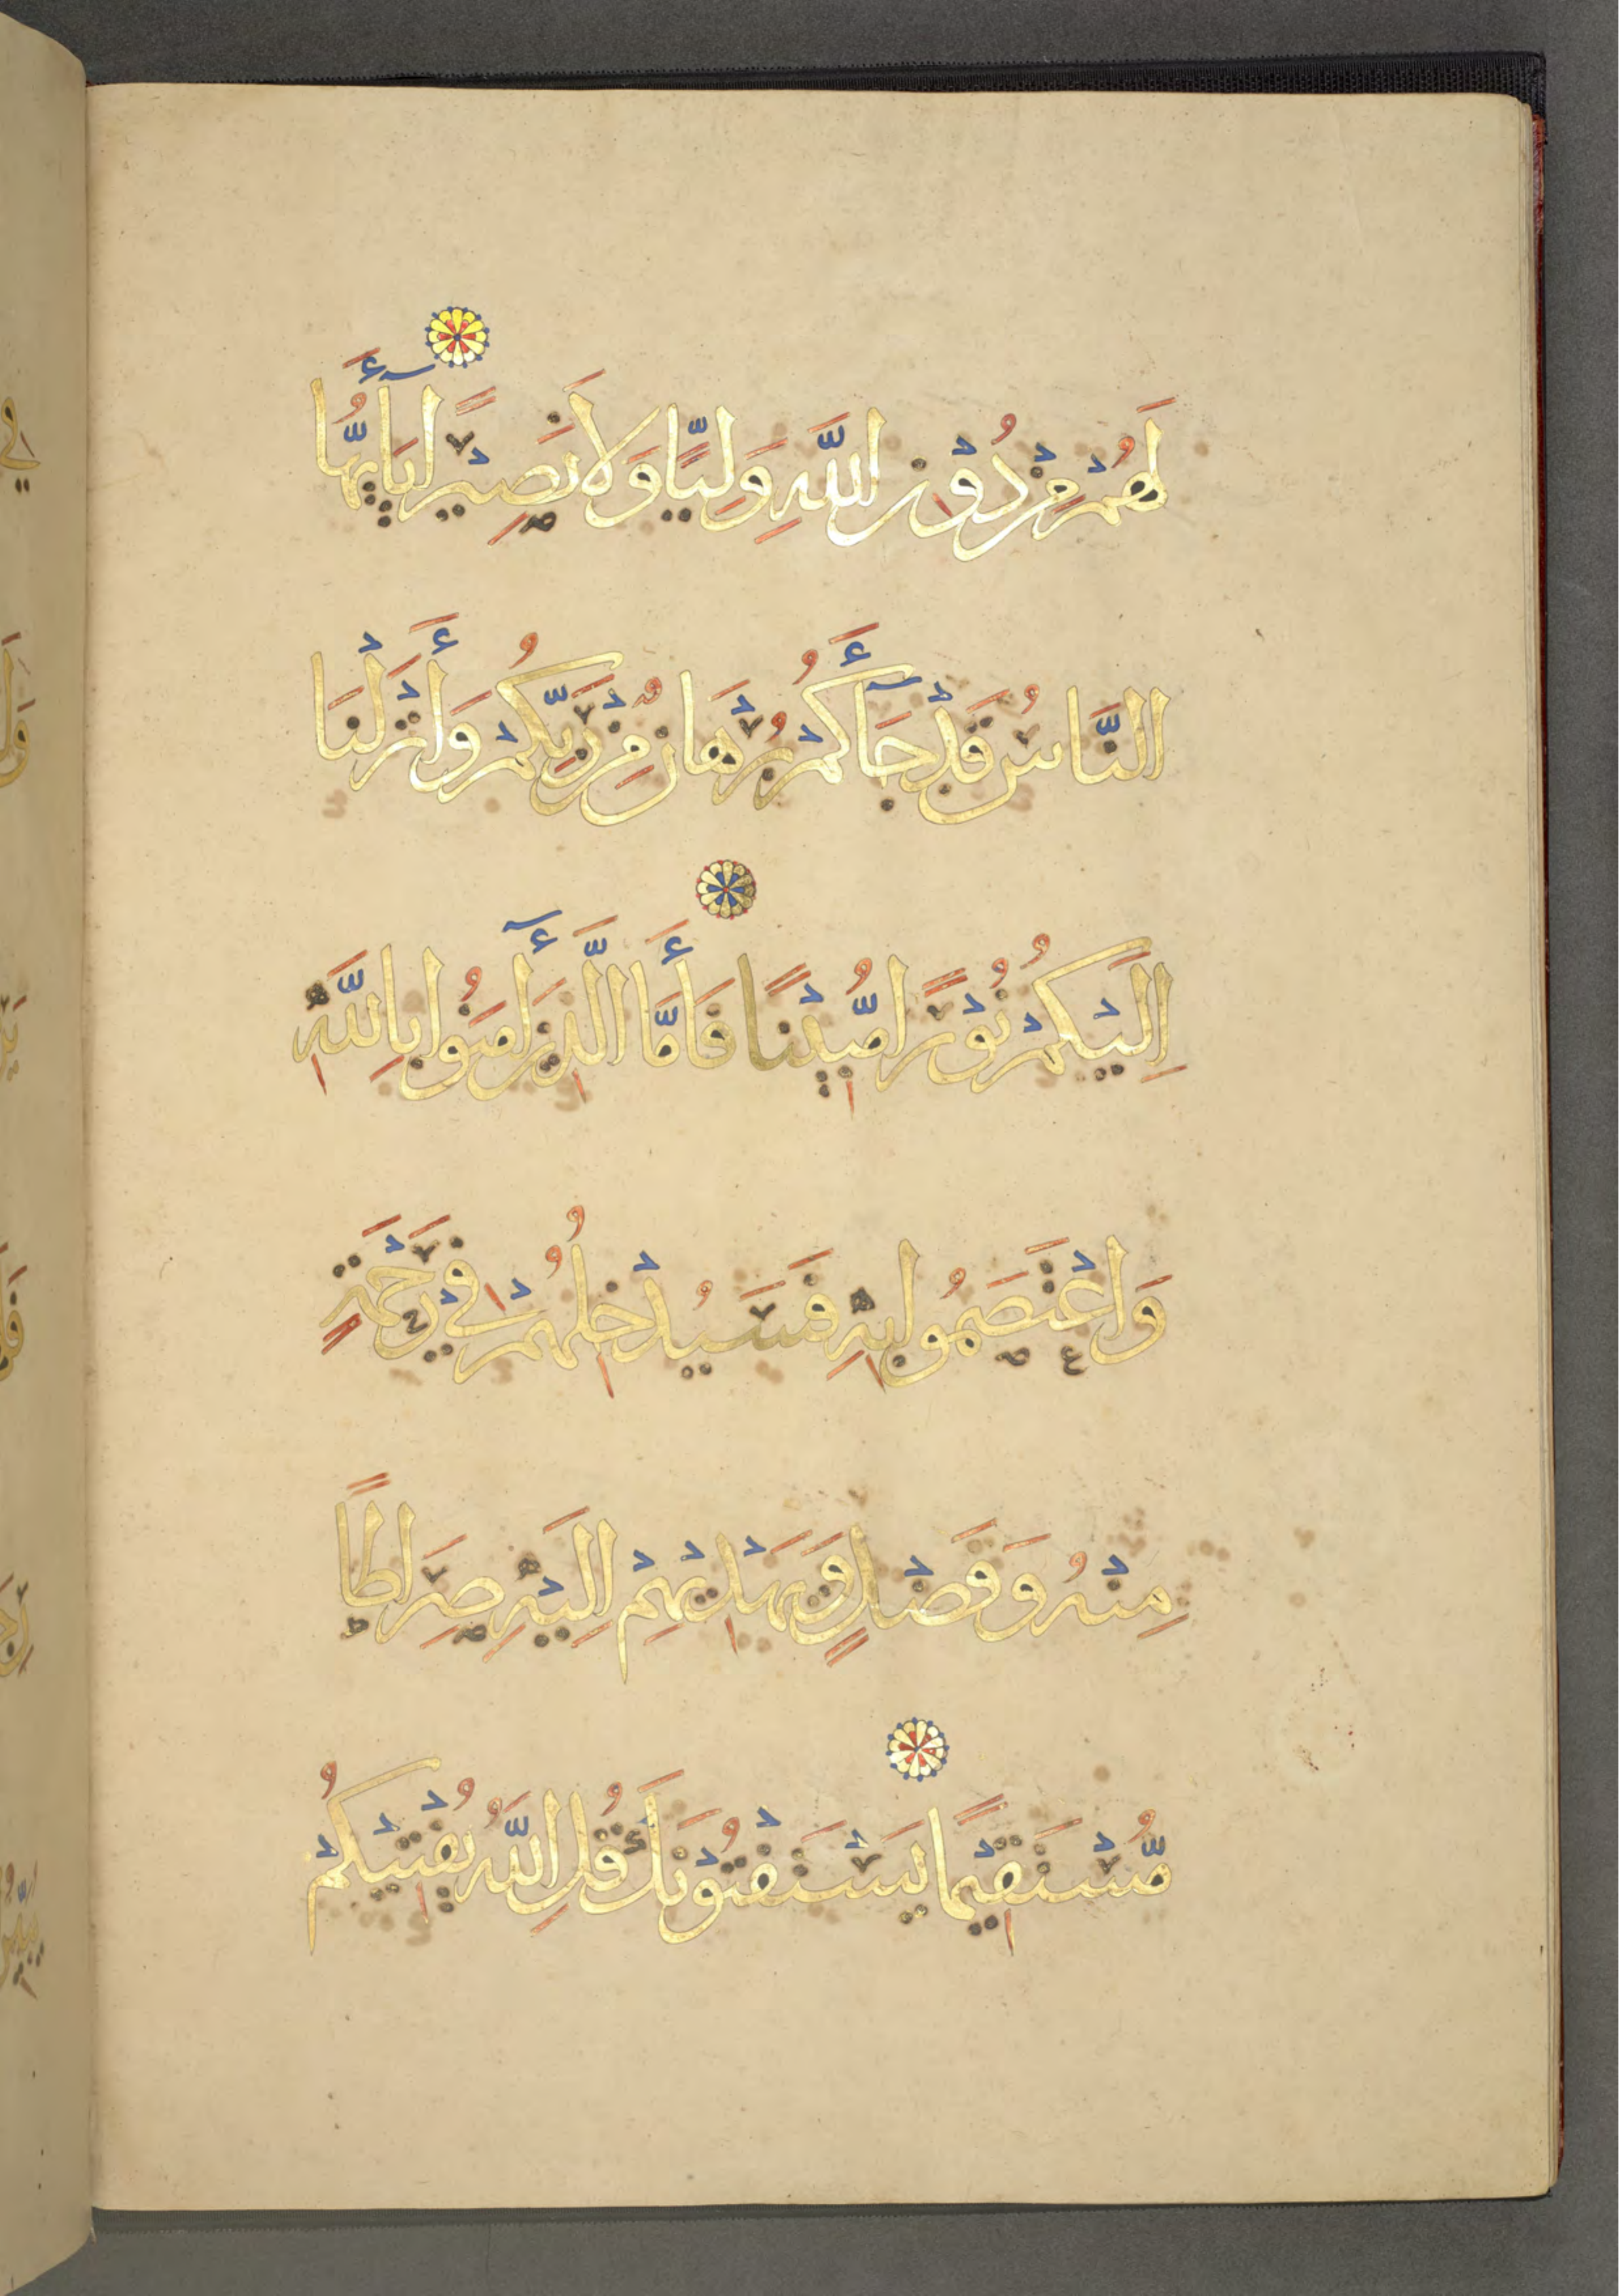 لَهُمْ مِّنْ دُوْنِ اللّٰهِ وَلِيًّا وَلَا نَصِيْرًا يَآأَيُّهَا
النَّاسُ قَدْ جَآءَكُمْ بُرْهَانٌ مِّنْ رَّبِّكُمْ وَأَنْزَلْنَا
اِلَيْكُمْ نُوْرًا مُّبِيْنًا فَأَمَّا الَّذِيْنَ اٰمَنُوْا بِاللّٰهِ
وَاعْتَصَمُوا بِهِ فَسَيُدْخِلُهُمْ فِي رَحْمَةٍ
مِنْهُ وَفَضْلٍ وَيَهْدِيْهِمْ اِلَيْهِ صِرَاطًا
مُّسْتَقِيْمًا يَسْتَفْتُوْنَكَ قُلِ اللّٰهُ يُفْتِيْكُمْ